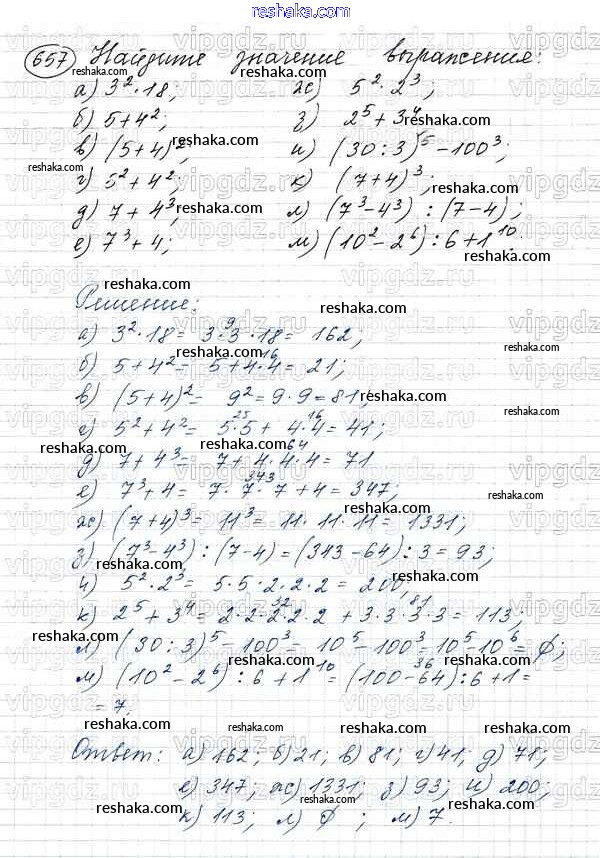 reshaka.com
657 Найдите значение выражения:
а) 3²·18; ж) 5²·2³;
б) 5+4²; з) 2⁵+3⁴
в) (5+4)²; и) (30:3)⁵-100³;
г) 5²+4²; к) (7+4)³;
д) 7+4³; л) (7³-4³):(7-4);
е) 7³+4; м) (10²-2⁶):6+1¹⁰.
Решение:
а) 3²·18= 3·3·18= 162; 9
б) 5+4²= 5+4·4=21; 16
в) (5+4)²= 9²=9·9=81;
г) 5²+4²= 5·5+4·4=41; 25 16
д) 7+4³= 7+4·4·4=71 64
е) 7³+4= 7·7·7+4=347; 343
ж) (7+4)³= 11³= 11·11·11=1331;
з) (7³-4³):(7-4)=(343-64):3=93;
и) 5²·2³= 5·5·2·2·2=200;
к) 2⁵+3⁴=2·2·2·2·2+3·3·3·3=113; 32 81
л) (30:3)⁵-100³= 10⁵-100³=10⁵-10⁶=∅;
м) (10²-2⁶):6+1¹⁰=(100-64):6+1= 36
= 7.
Ответ: а) 162; б) 21; в) 81; г) 41; д) 71;
е) 347; ж) 1331; з) 93; и) 200;
к) 113; л) ∅; м) 7.